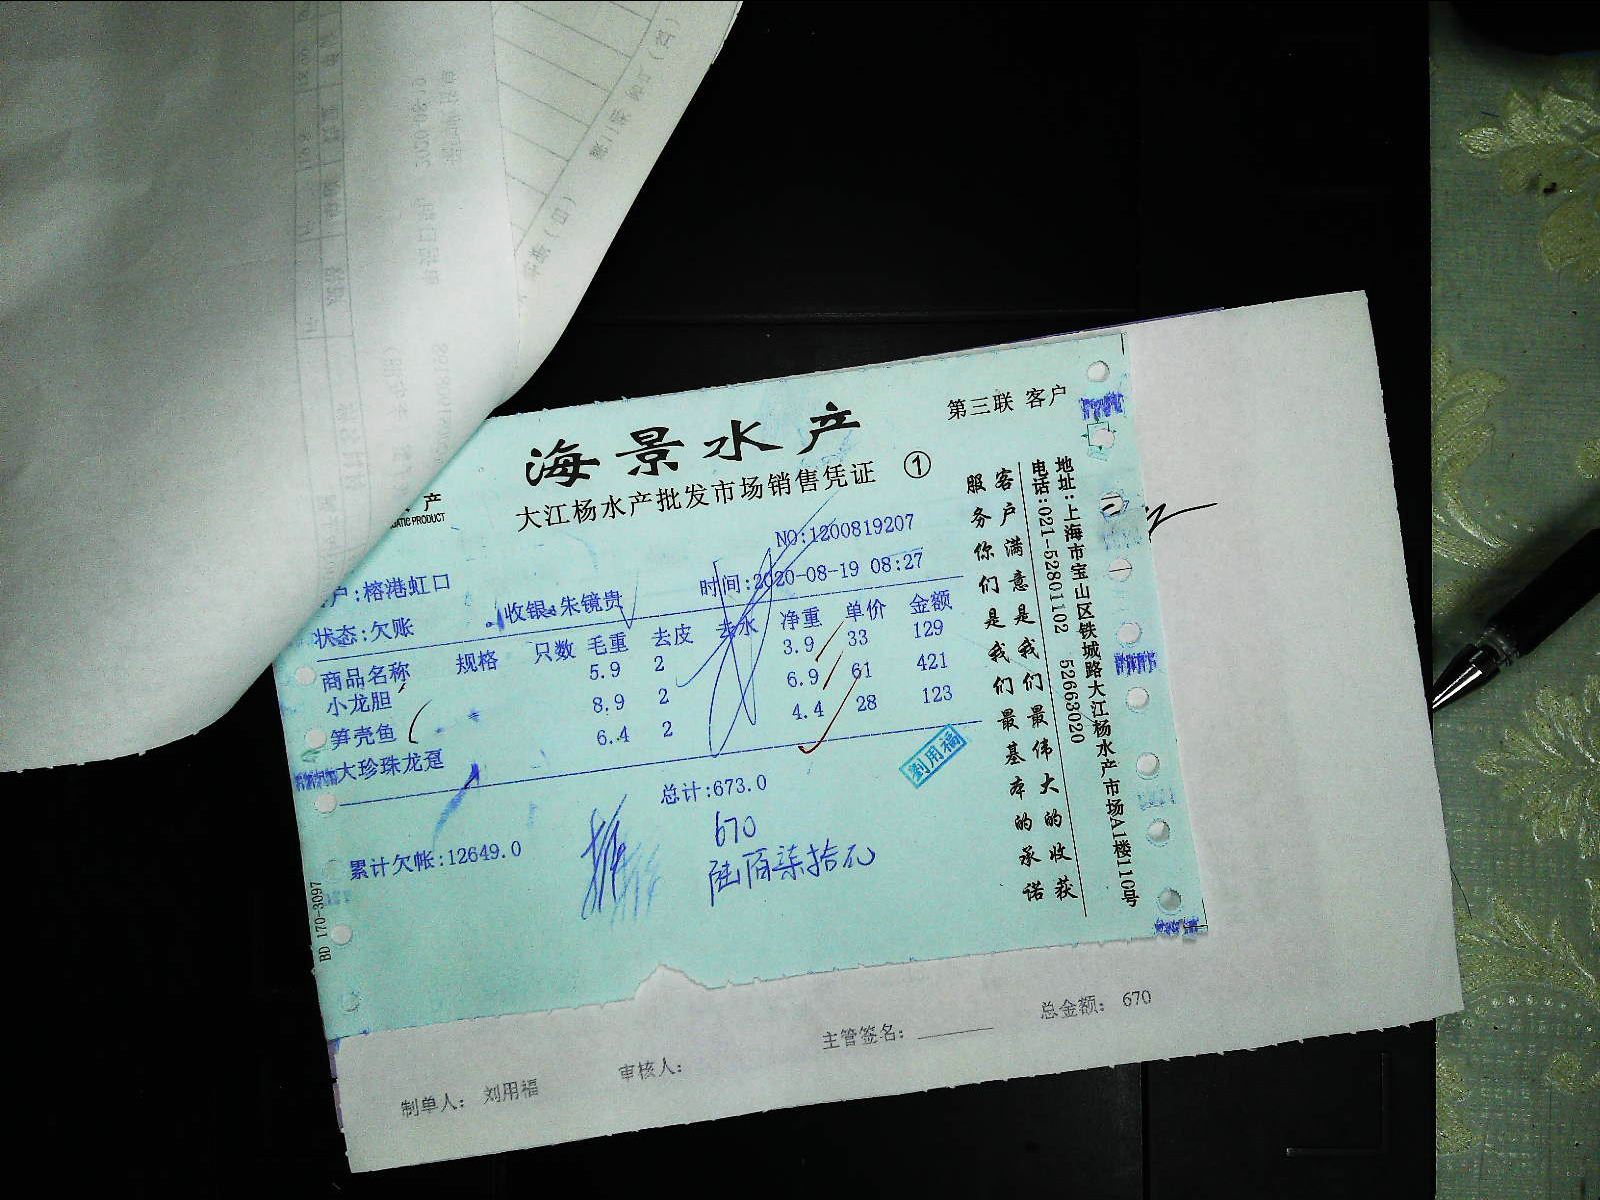 海景水产
第三联 客户
产
ATIC PRODUCT
大江杨水产批发市场销售凭证 ①
NO:1200819207
户:榕港虹口
时间:2020-08-19 08:27
状态:欠账
收银:朱镜贵
商品名称 规格 只数 毛重 去皮 去水 净重 单价 金额
小龙胆 5.9 2 3.9 33 129
笋壳鱼 8.9 2 6.9 61 421
大珍珠龙趸 6.4 2 4.4 28 123
总计:673.0
劉用福
670
陆佰柒拾元
累计欠帐:12649.0
BD 170-3097
客户满意是我们最伟大的收获
服务你们是我们最基本的承诺
地址:上海市宝山区铁城路大江杨水产市场A1楼110号
电话:021-52801102 52663020
总金额: 670
主管签名:
审核人:
制单人: 刘用福